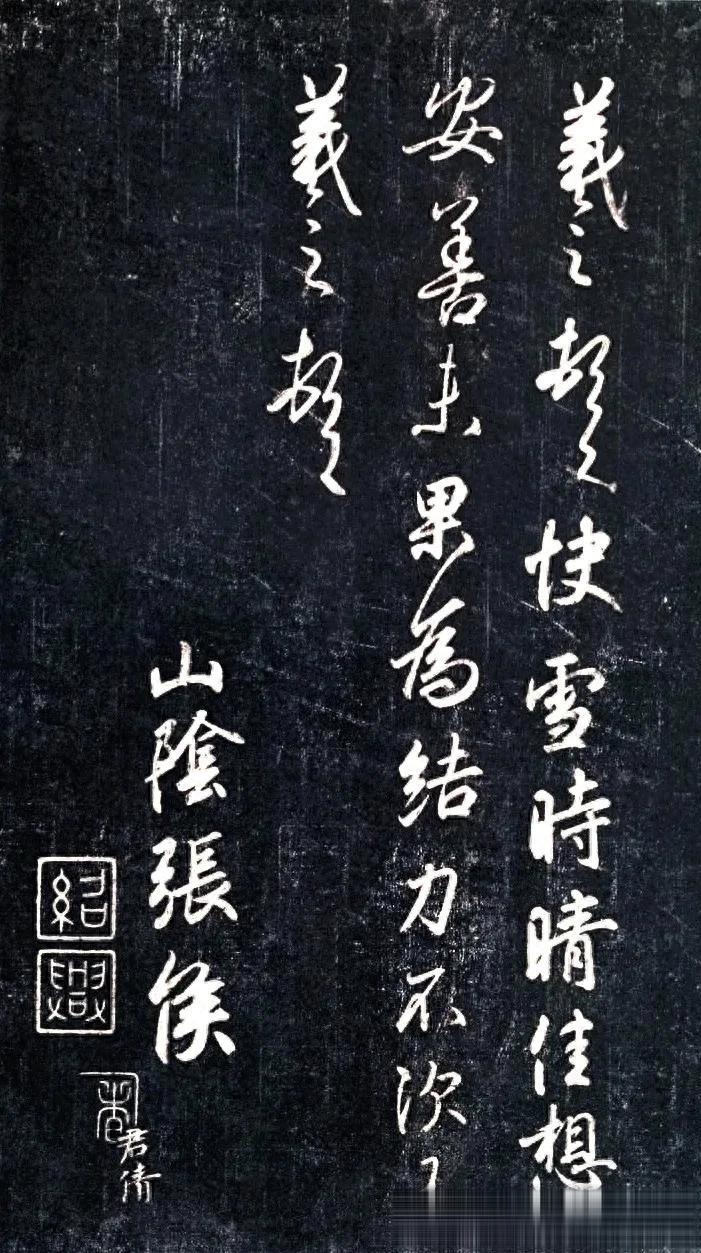 羲之頓首快雪時晴佳想
安善未果為結力不次
羲之頓首
山陰張侯
紹興
君倩